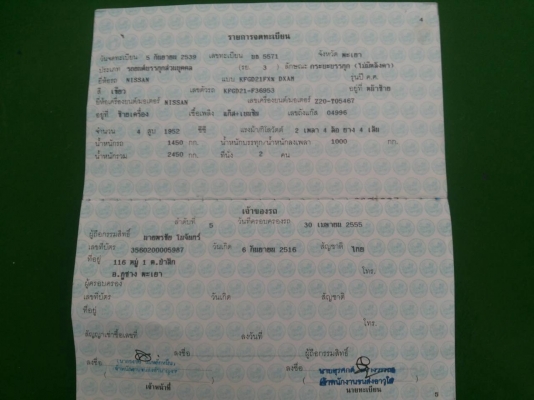 4
รายการจดทะเบียน
วันจดทะเบียน 5 กันยายน 2539 เลขทะเบียน บต 5571 จังหวัด พะเยา
ประเภท รถยนต์บรรทุกส่วนบุคคล (รย. 3 ) ลักษณะ กระบะบรรทุก (ไม่มีหลังคา)
ยี่ห้อรถ NISSAN แบบ รุ่นปี ค.ศ.
สี เขียว เลขตัวรถ อยู่ที่ หน้าซ้าย
ยี่ห้อเครื่องยนต์/มอเตอร์ NISSAN เลขเครื่องยนต์/มอเตอร์ 220-705467
อยู่ที่ ซ้ายเครื่อง เชื้อเพลิง เลขถังแก๊ส 04996
จำนวน 4 สูบ 1952 ซีซี แรงม้า/กิโลวัตต์ 2 เพลา 4 ล้อ ยาง 4 เส้น
น้ำหนักรถ 1450 กก. น้ำหนักบรรทุก/น้ำหนักลงเพลา 1000 กก.
น้ำหนักรวม 2450 กก. ที่นั่ง 2 คน
เจ้าของรถ
ลำดับที่ 5 วันที่ครอบครองรถ 30 เมษายน 2555
ผู้ถือกรรมสิทธิ์
เลขที่บัตร 3560200005987 วันเกิด 6 กันยายน 2516 สัญชาติ ไทย
ที่อยู่ 116 หมู่ 1
อ.ภูซาง พะเยา โทร.
ผู้ครอบครอง
เลขที่บัตร วันเกิด สัญชาติ
ที่อยู่
โทร.
สัญญาเช่าซื้อเลขที่ ลงวันที่
ลงชื่อ ผู้ถือกรรมสิทธิ์
ลงชื่อ ลงชื่อ
เจ้าพนักงานขนส่งอาวุโส
เจ้าหน้าที่ นายทะเบียน